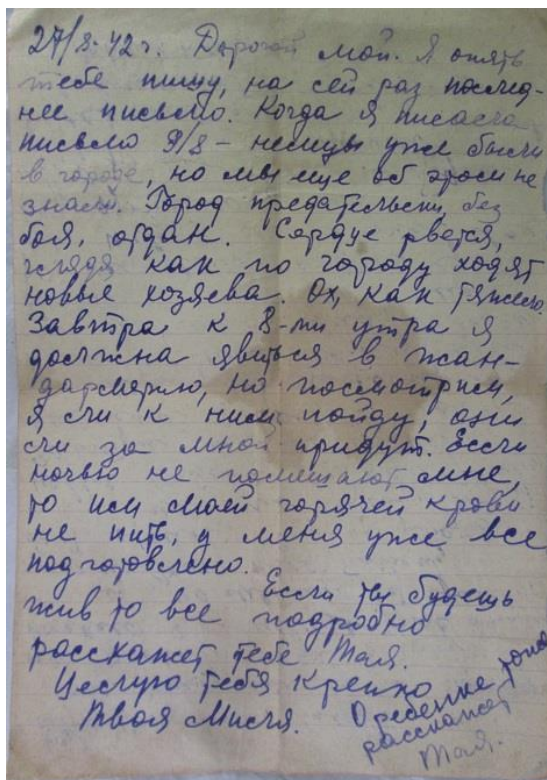 27/8-42 г. Дорогой мой. Я опять
тебе пишу, на сей раз послед-
нее письмо. Когда я писала
письмо 9/8 - немцы уже были
в городе, но мы еще об этом не
знали. Город предательски, без
боя, отдан. Сердце рвется,
глядя как по городу ходят
новые хозяева. Ох, как тяжело.
Завтра к 8-ми утра я
должна явиться в жан-
дармерию, но посмотрим,
я ли к ним пойду, они
ли за мной придут. Если
ночью не помешают мне,
то им моей горячей крови
не пить, у меня уже все
подготовлено.
Если ты будешь
жив то все подробно
расскажет тебе Таля.
Целую тебя крепко
Твоя Миля.
О ребенке тоже
расскажет
Таля.